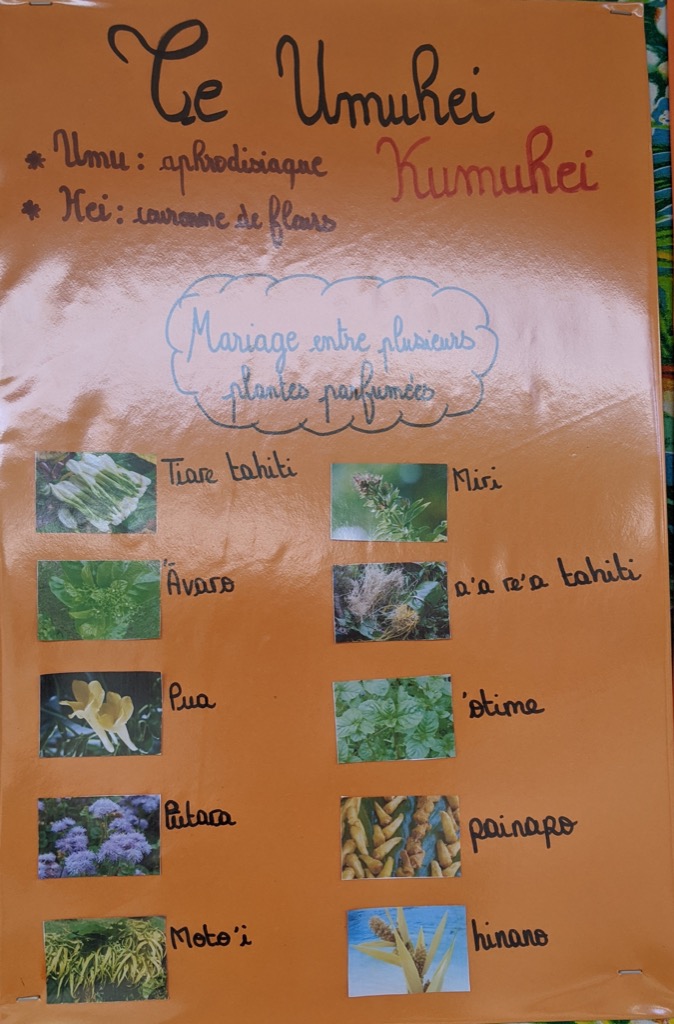 Te Umuhei
* Umu : aphrodisiaque
Kumuhei
* Hei : couronne de fleurs
Mariage entre plusieurs
plantes parfumées
Tiare tahiti
Miri
Āvaro
a'a re'a tahiti
Pua
'otime
Pūtara
painapo
Moto'i
hinano